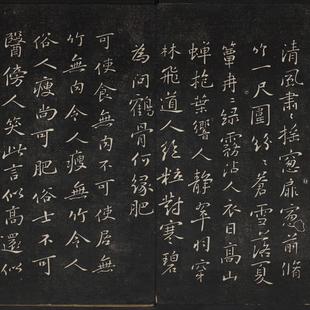 清風肅〻摇窓扉窓前脩
竹一尺圍紛〻蒼雪落夏
簟冉〻緑霧沾人衣日高山
蝉抱葉響人静翠羽穿
林飛道人絶粒對寒碧
為問鶴骨何縁肥
可使食無肉不可使居無
竹無肉令人瘦無竹令人
俗人瘦尚可肥俗士不可
醫傍人笑此言似高還似